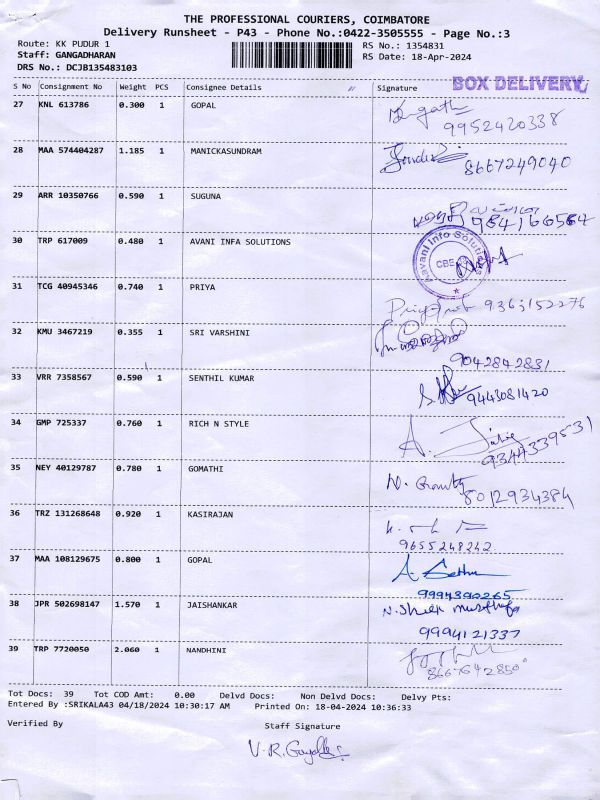 THE PROFESSIONAL COURIERS, COIMBATORE
Delivery Runsheet - P43 - Phone No.:0422-3505555 - Page No.:3
Route: KK PUDUR 1 RS No.: 1354831
Staff: GANGADHARAN RS Date: 18-Apr-2024
DRS No.: DCJB135483103
BOX DELIVERY
S No Consignment No Weight PCS Consignee Details Signature
27 KNL 613786 0.300 1 GOPAL
9952420338
28 MAA 574404287 1.185 1 MANICKASUNDRAM
8667249040
29 ARR 10350766 0.590 1 SUGUNA
30 TRP 617009 0.480 1 AVANI INFA SOLUTIONS
Aavani Info Solutions
CBE
31 TCG 40945346 0.740 1 PRIYA
9363152276
32 KMU 3467219 0.355 1 SRI VARSHINI
9042842831
33 VRR 7358567 0.590 1 SENTHIL KUMAR
9443081420
34 GMP 725337 0.760 1 RICH N STYLE
9344339531
35 NEY 40129787 0.780 1 GOMATHI
8012934384
36 TRZ 131268648 0.920 1 KASIRAJAN
9655248242
37 MAA 108129675 0.800 1 GOPAL
9994390265
38 JPR 502698147 1.570 1 JAISHANKAR
9994121337
39 TRP 7720050 2.060 1 NANDHINI
Tot Docs: 39 Tot COD Amt: 0.00 Delvd Docs: Non Delvd Docs: Delvy Pts:
Entered By :SRIKALA43 04/18/2024 10:30:17 AM Printed On: 18-04-2024 10:36:33
Verified By Staff Signature